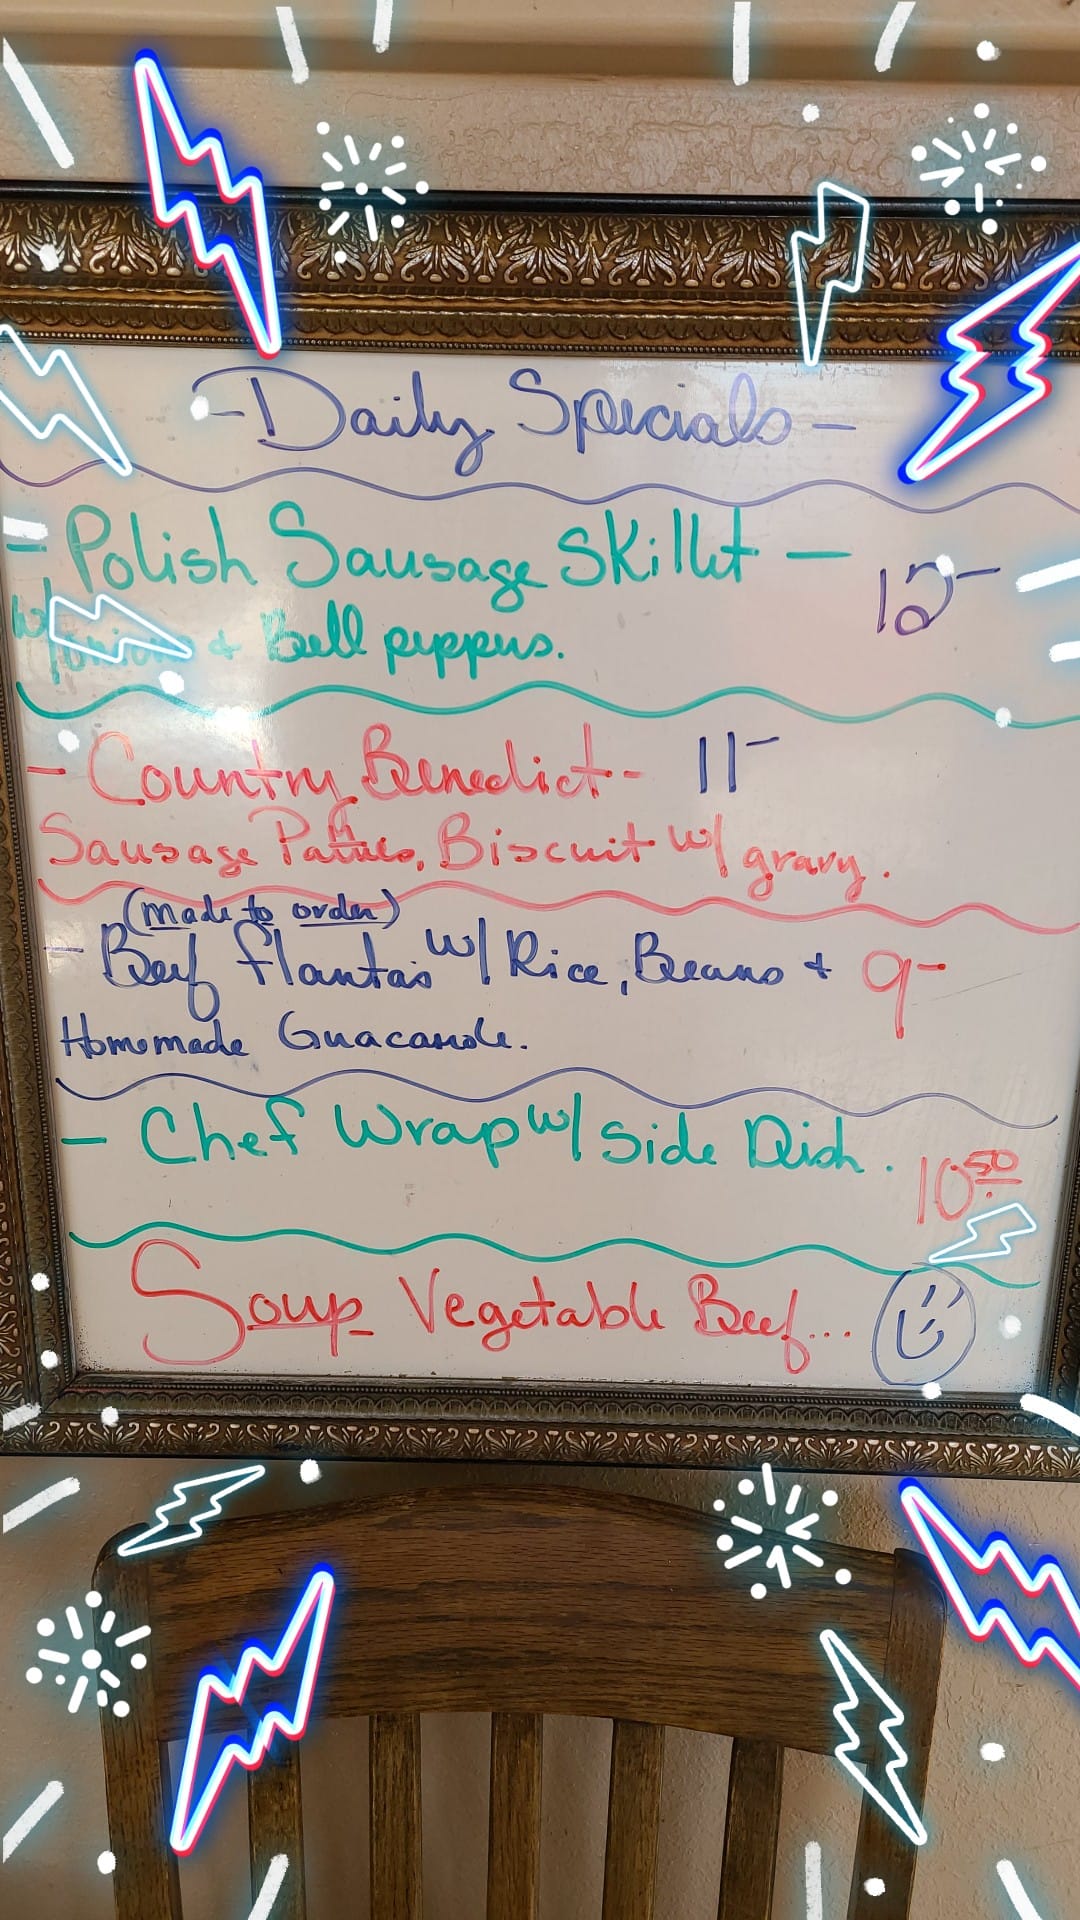 - Daily Specials -
- Polish Sausage Skillet - 12-
w/ onions & Bell peppers.
- Country Benedict - 11-
Sausage Patties, Biscuit w/ gravy.
(made to order)
- Beef flantas w/ Rice, Beans & 9-
Homemade Guacamole.
- Chef Wrap w/ Side Dish. 10.50
Soup Vegetable Beef...